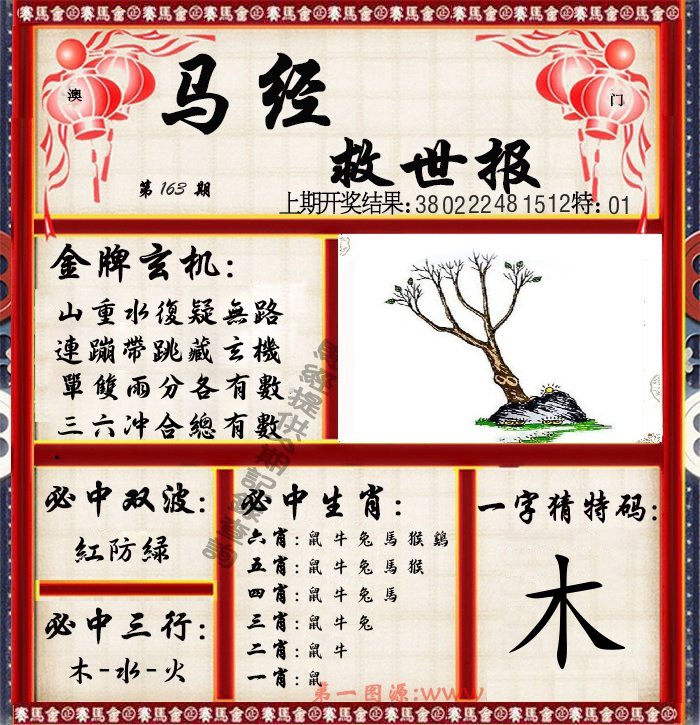 賽馬會 賽馬會 賽馬會 賽馬會 賽馬會 賽馬會 賽馬會 賽馬會 賽馬會 賽馬會
澳 马经 门
救世报
第163期
上期开奖结果:380222481512特:01
金牌玄机:
山重水復疑無路
連蹦帶跳藏玄機
單雙兩分各有數
三六冲合總有數
必中双波:
紅防緑
必中三行:
木-水-火
必中生肖:
六肖:鼠牛兔馬猴鷄
五肖:鼠牛兔馬猴
四肖:鼠牛兔馬
三肖:鼠牛兔
二肖:鼠牛
一肖:鼠
一字猜特码:
木
第一图源:www